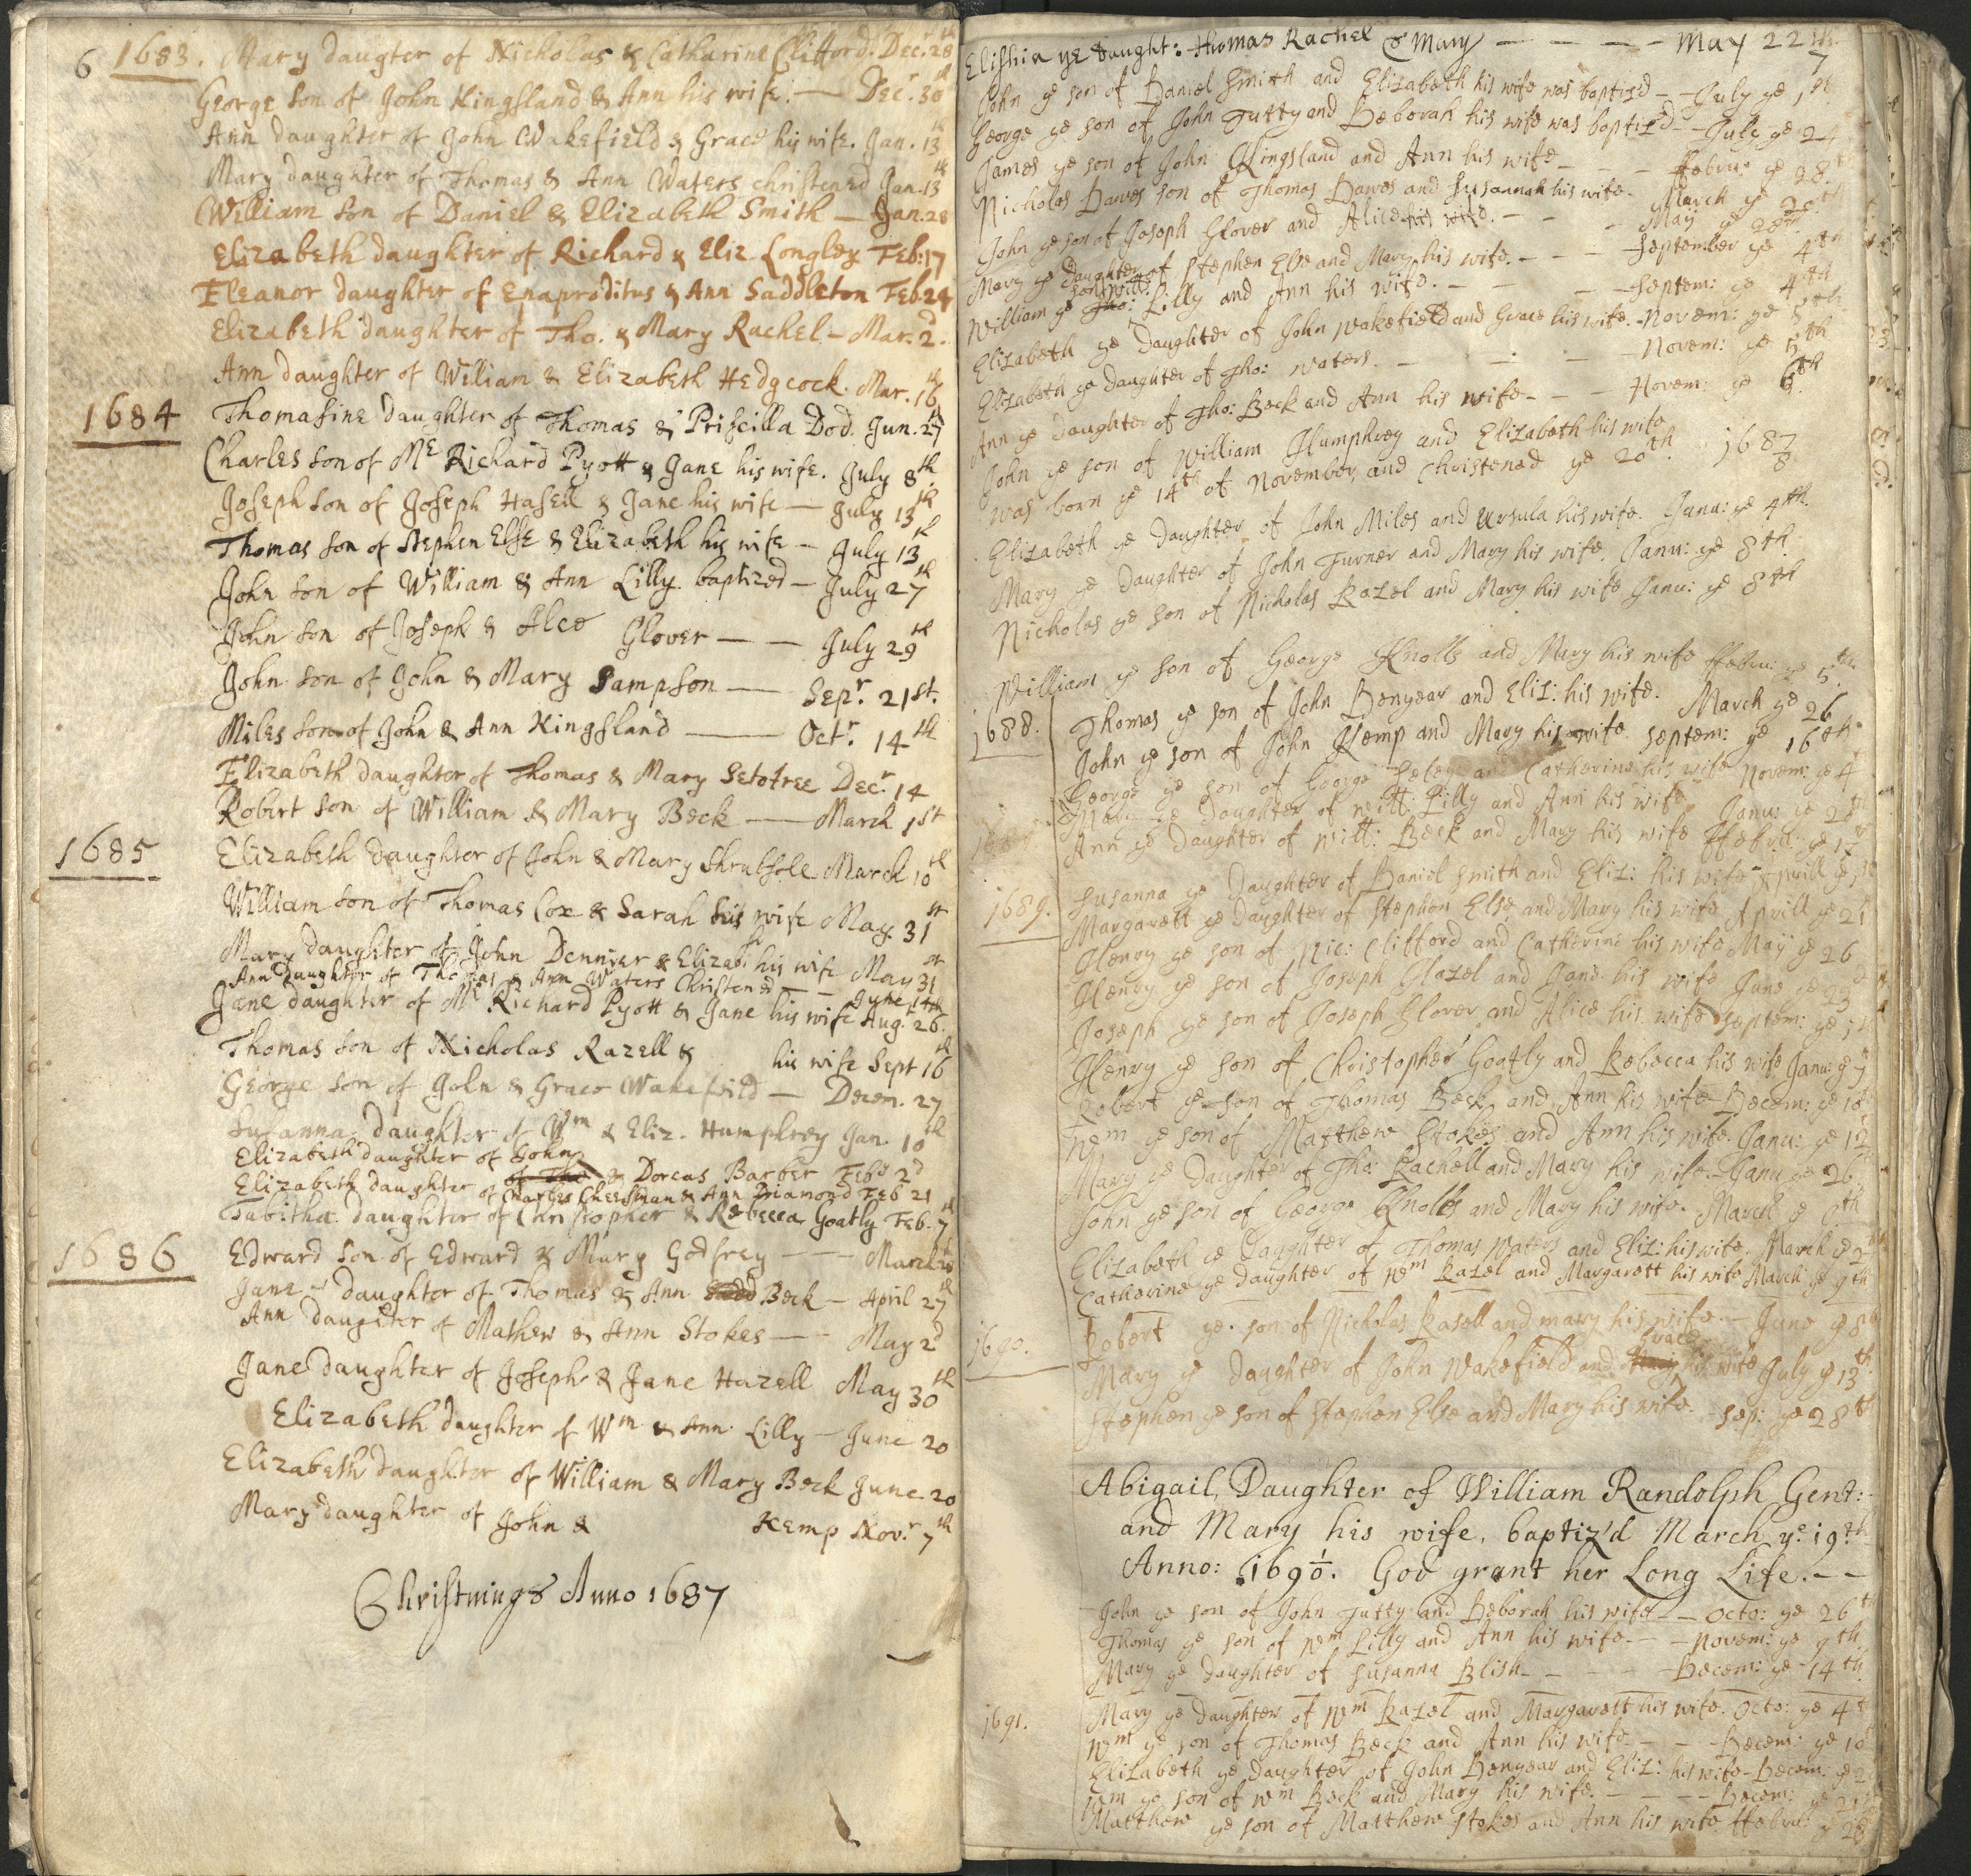 6 1683. Mary daugter of Nicholas & Catharine Clifford. Decr. 28th
George son of John Kingsland & Ann his wife. — Decr. 30th
Ann daughter of John Wakefield & Grace his wife. Jan. 13th
Mary daughter of Thomas & Ann Waters christened Jan. 13th
William son of Daniel & Elizabeth Smith — Jan. 28
Elizabeth daughter of Richard & Eliz. Longley Feb: 17
Eleanor daughter of Enaproditus & Ann Saddleton Feb. 24
Elizabeth daughter of Tho. & Mary Rachel - Mar. 2d.
Ann daughter of William & Elizabeth Hedgcock. Mar. 16th
1684 Thomasine daughter of Thomas & Priscilla Dod. Jun. 27th
Charles son of Mr Richard Pyott & Jane his wife. July 8th
Joseph son of Joseph Hasell & Jane his wife — July 13th
Thomas son of Stephen Else & Elizabeth his wife — July 13th
John son of William & Ann Lilly baptized — July 27th
John son of Joseph & Alce Glover — — July 29th
John son of John & Mary Sampson — Sepr. 21st.
Miles son of John & Ann Kingsland — Octr. 14th
Elizabeth daughter of Thomas & Mary Setotree Decr. 14
Robert son of William & Mary Beck — March 1st
1685 Elizabeth daughter of John & Mary Shrubsole March 10th
William son of Thomas Cox & Sarah his wife May. 31st
Mary daughter of John Denniar & Elizabth his wife May 31st
Ann daughter of Thomas & Ann Waters Christened — — June 14th
Jane daughter of Mr Richard Pyott & Jane his wife Aug. 26.
Thomas son of Nicholas Razell & his wife Sept 16th
George son of John & Grace Wakefeild — Decem. 27
Susanna daughter of Wm & Eliz. Humphrey Jan. 10th
Elizabeth daughter of John & Dorcas Barber Feb. 2d
Elizabeth daughter of Charles Cheesman & Ann Diamond Feb 21
Tabitha daughter of Christopher & Rebecca Goatly Feb. 7th
1686 Edward son of Edward & Mary Godfrey — — March
Jane - daughter of Thomas & Ann Beck — April 27th
Ann daughter of Mathew & Ann Stokes — — May 2d
Jane daughter of Joseph & Jane Hazell May 30th
Elizabeth daughter of Wm & Ann Lilly — June 20
Elizabeth daughter of William & Mary Beck June 20
Mary daughter of John & Kemp Novr. 7th
Christnings Anno 1687
Elishia ye daught: Thomas Rachel & Mary — — — — May 22th.
John ye son of Daniel Smith and Elizabeth his wife was baptizd — July ye 1st
George ye son of John Tutty and Deborah his wife was baptizd — July ye 24
James ye son of John Kingsland and Ann his wife — — — ffebru: ye 28th
Nicholas Dawes son of Thomas Dawes and Susannah his wife. March ye 20th
John ye son of Joseph Glover and Alice his wife. — — May ye 28th
Mary ye Daughter of Stephen Else and Mary his wife. — — — September ye 4th
William ye son Will: Tho: Lilly and Ann his wife. — — — Septem: ye 4th
Elizabeth ye Daughter of John Wakefield and Grace his wife. Novem: ye
Elizabeth ye daughter of Tho: Waters. — — — Novem: ye
Ann ye Daughter of Tho: Beck and Ann his wife — — — Novem: ye 6th
John ye son of William Humphrey and Elizabeth his wife
was born ye 14th of November, and Christened ye 20th. 1687/8
Elizabeth ye Daughter of John Miles and Ursula his wife. Janu: ye 4th.
Mary ye Daughter of John Turner and Mary his wife. Janu: ye 8th
Nicholas ye son of Nicholas Razel and Mary his wife Janu: ye 8th
William ye son of George Knolls and Mary his wife ffebru: ye 5th
1688. Thomas ye son of John Denyear and Eliz: his wife. March ye 26
John ye son of John Kemp and Mary his wife. Septem: ye 16th
George ye son of George and Catherine his wife Novem: ye 4
Mary ye Daughter of Will: Lilly and Ann his wife Janu: ye
Ann ye Daughter of Will: Beck and Mary his wife ffebru: ye 17
1689. Susanna ye Daughter of Daniel Smith and Eliz: his wife Aprill ye
Margarett ye Daughter of Stephen Else and Mary his wife Aprill ye 21
Henry ye son of Nic: Clifford and Catherine his wife May ye 26
Henry ye son of Joseph Hazel and Jane his wife June ye 23d
Joseph ye son of Joseph Glover and Alice his wife Septem: ye 1st
Henry ye son of Christopher Goatly and Rebecca his wife Janu: ye
Robert ye son of Thomas Beck and Ann his wife Decem: ye 18
Wm ye son of Matthew Stokes and Ann his wife. Janu: ye 12
Mary ye Daughter of Tho: Rachell and Mary his wife — Janu ye 26
John ye son of George Knolls and Mary his wife. March ye
Elizabeth ye Daughter of Thomas Waters and Eliz: his wife. March ye 2
Catherine ye Daughter of Wm Razel and Margarett his wife March ye 9th
1690. Robert ye son of Nicholas Rasell and mary his wife — June ye 8th
Mary ye Daughter of John Wakefield and Grace his wife July ye 13th
Stephen ye son of Stephen Else and Mary his wife. Sep: ye 28th
Abigail, Daughter of William Randolph Gent:
and Mary his wife, baptiz'd March ye. 19th
Anno: 1690/1. God grant her Long Life. — —
John ye son of John Tutty and Deborah his wife — — Octo: ye 26th
Thomas ye son of Wm Lilly and Ann his wife. — — Novem: ye 9th
Mary ye Daughter of Susanna Blish — — — — Decem: ye 14th
1691. Mary ye Daughter of Wm Razel and Margarett his wife. Octo: ye 4th
Wm ye son of Thomas Beck and Ann his wife. — — — Decem: ye 10
Elizabeth ye Daughter of John Denyear and Eliz: his wife — Decem: ye 2
Wm ye son of Wm Beck and Mary his wife. — — — — Decem: ye 21
Matthew ye son of Matthew Stokes and Ann his wife ffebru: ye 28